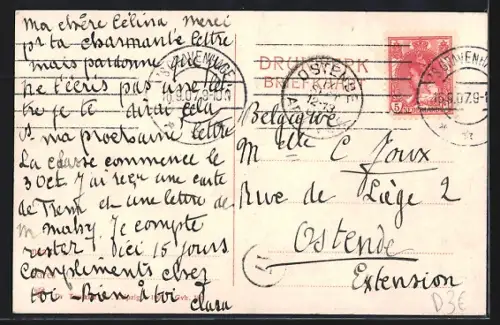 Ma chère Célina merci
pr ta charmante lettre
mais pardonne que je
ne t'écris pas une lettre
je te dirai cela
ds ma prochaine lettre
La classe commence le
3 Oct. J'ai reçu une carte
de Trem et une lettre de
M Mahy. Je compte
rester ici 15 jours
Compliments chez
toi Bien à toi Clara
DRUKWERK
BRIEFKAART
'S GRAVENHAGE
OSTENDE
12-13
'S GRAVENHAGE
16.9.07.9
5
Belgique
Mlle C Joux
Rue de Liège 2
Ostende
Extension
D3€